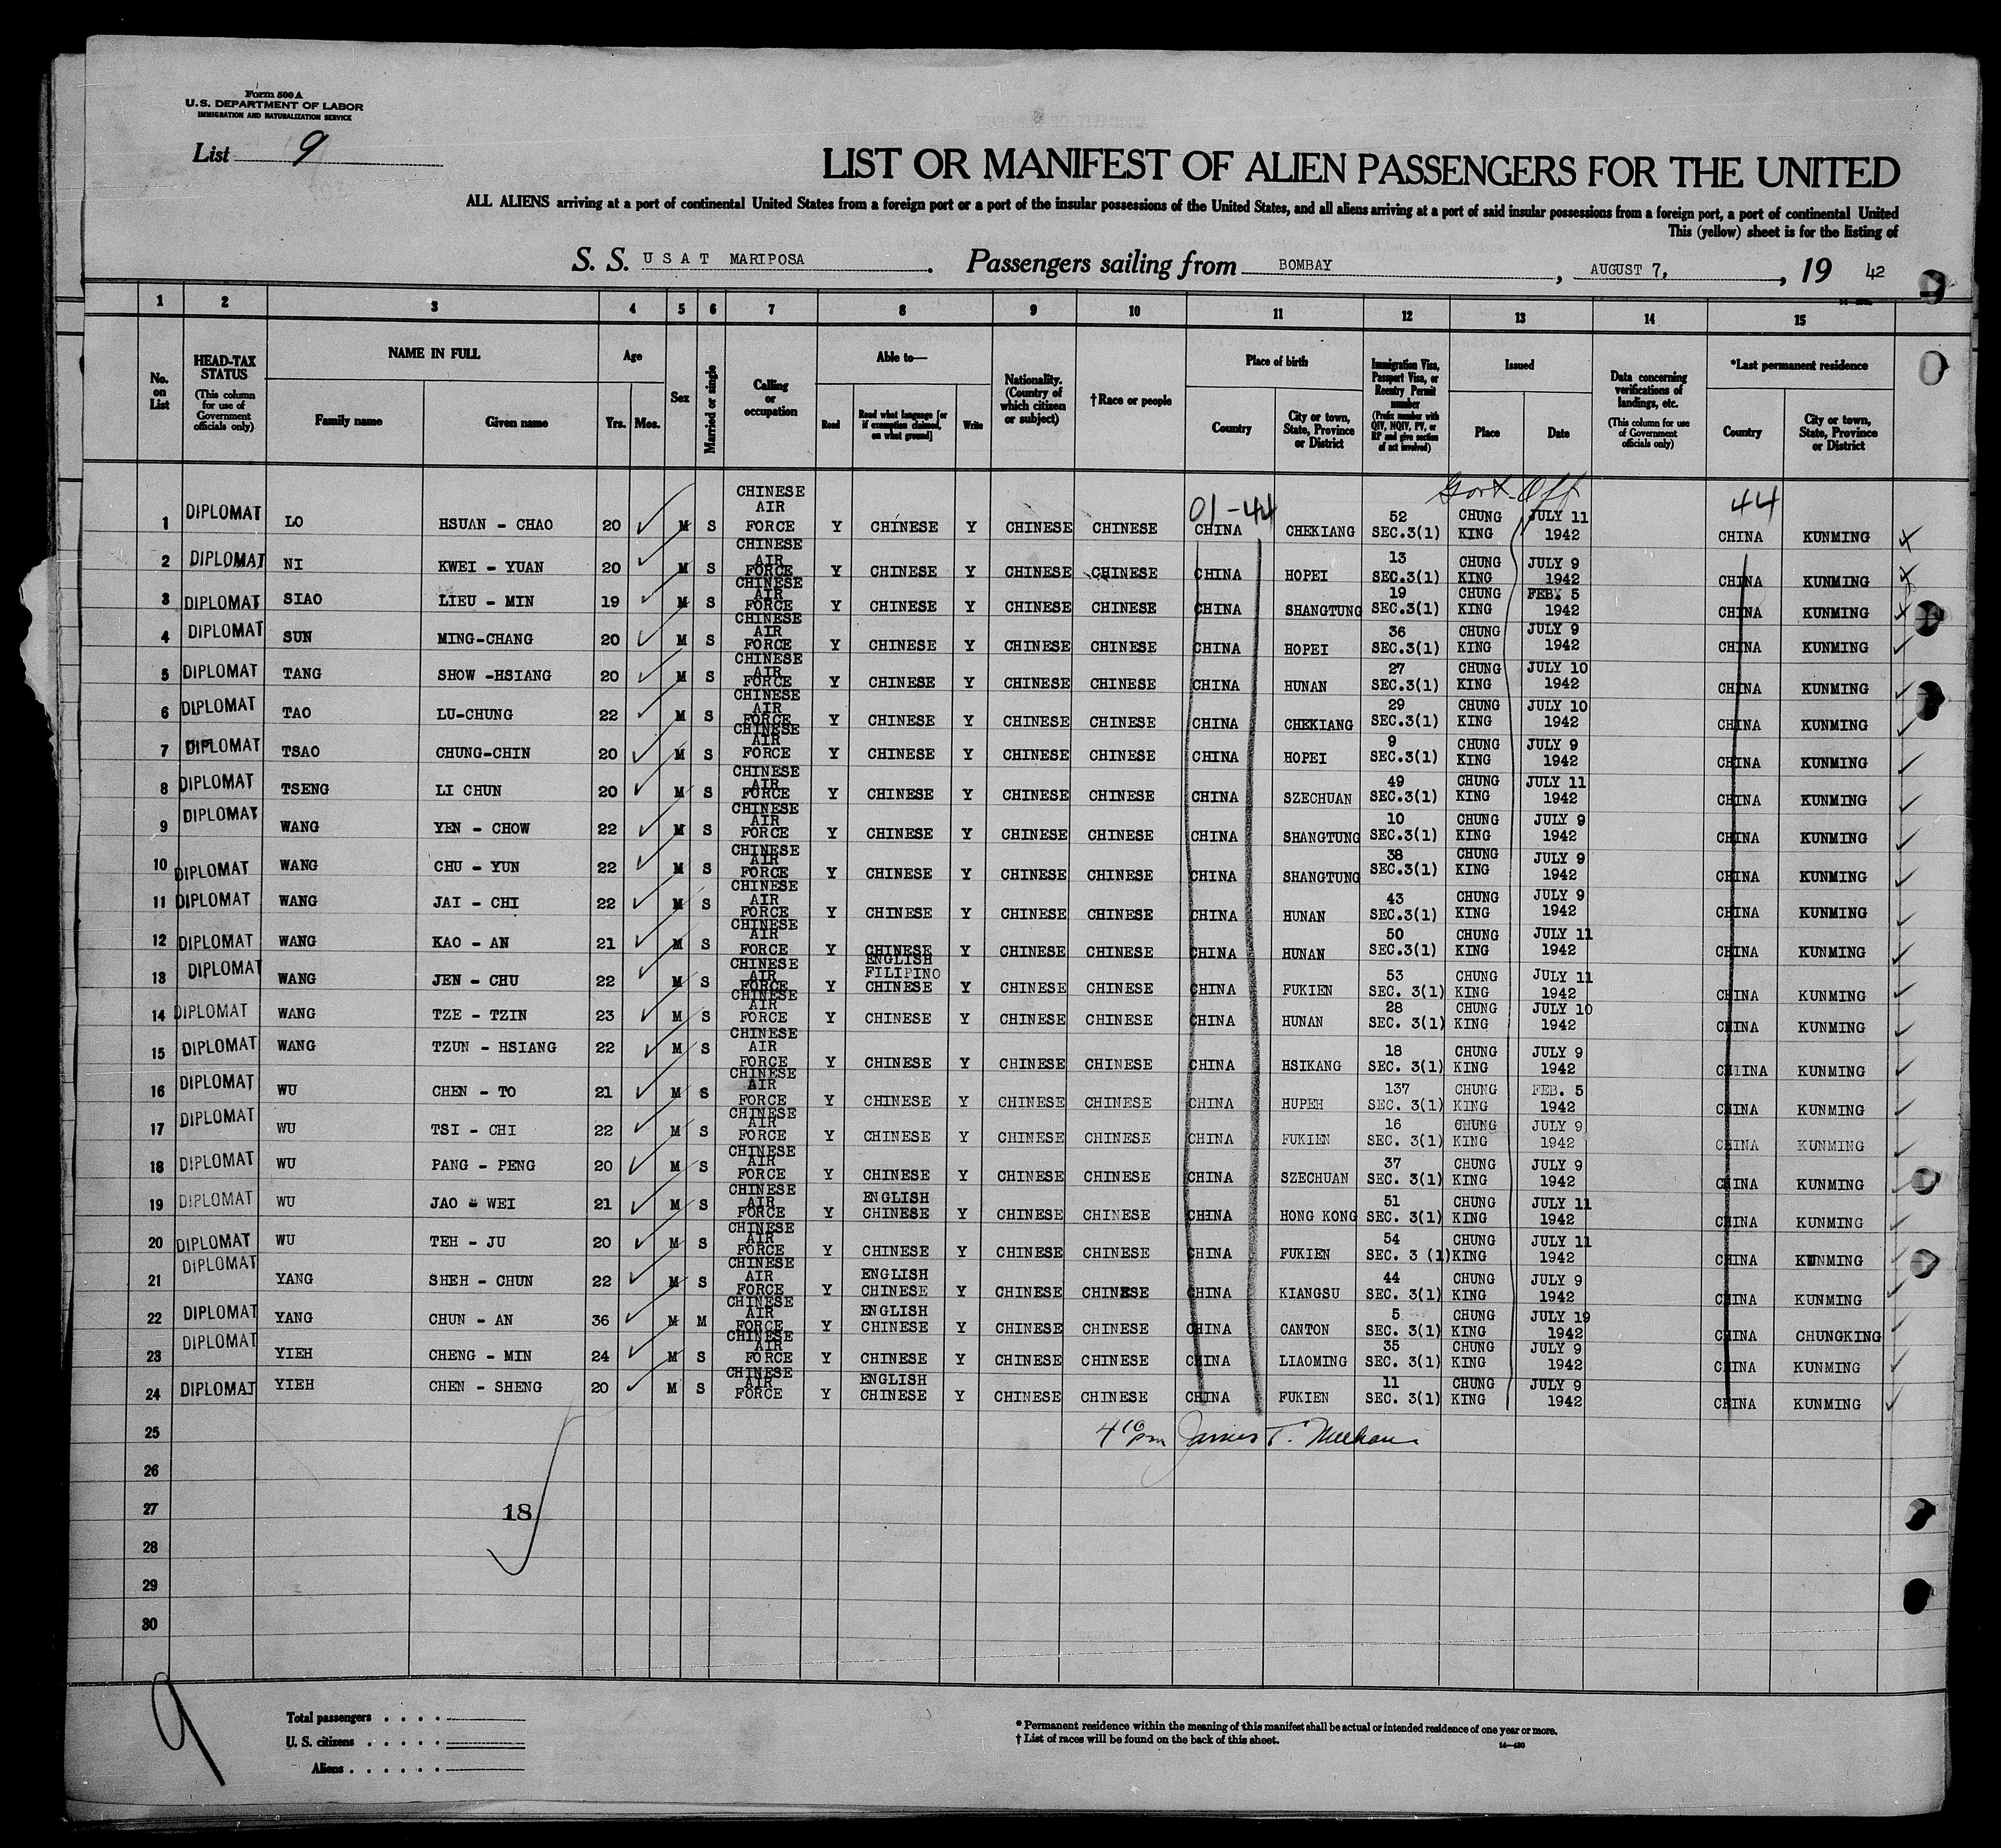 Form 500 A
U.S. DEPARTMENT OF LABOR
IMMIGRATION AND NATURALIZATION SERVICE
List 9
LIST OR MANIFEST OF ALIEN PASSENGERS FOR THE UNITED
ALL ALIENS arriving at a port of continental United States from a foreign port or a port of the insular possessions of the United States, and all aliens arriving at a port of said insular possessions from a foreign port, a port of continental United
This (yellow) sheet is for the listing of
S. S. U S A T MARIPOSA. Passengers sailing from BOMBAY, AUGUST 7, 19 42
1 2 3 4 5 6 7 8 9 10 11 12 13 14 15
No. on List
HEAD-TAX STATUS (This column for use of Government officials only)
NAME IN FULL Family name Given name
Age Yrs. Mos.
Sex
Married or single
Calling or occupation
Able to— Read Read what language [or if exemption claimed, on what ground] Write
Nationality. (Country of which citizen or subject)
†Race or people
Place of birth Country City or town, State, Province or District
Immigration Visa, Passport Visa, or Reentry Permit number (Prefix number with QIV, NQIV, PV, or RP and give section of act involved)
Issued Place Date
Data concerning verifications of landings, etc. (This column for use of Government officials only)
*Last permanent residence Country City or town, State, Province or District
Govt. Off
01-44 44
1 DIPLOMAT LO HSUAN - CHAO 20 M S CHINESE AIR FORCE Y CHINESE Y CHINESE CHINESE CHINA CHEKIANG 52 SEC.3(1) CHUNG KING JULY 11 1942 CHINA KUNMING
2 DIPLOMAT NI KWEI - YUAN 20 M S CHINESE AIR FORCE Y CHINESE Y CHINESE CHINESE CHINA HOPEI 13 SEC.3(1) CHUNG KING JULY 9 1942 CHINA KUNMING
3 DIPLOMAT SIAO LIEU - MIN 19 M S CHINESE AIR FORCE Y CHINESE Y CHINESE CHINESE CHINA SHANGTUNG 19 SEC.3(1) CHUNG KING FEB. 5 1942 CHINA KUNMING
4 DIPLOMAT SUN MING-CHANG 20 M S CHINESE AIR FORCE Y CHINESE Y CHINESE CHINESE CHINA HOPEI 36 SEC.3(1) CHUNG KING JULY 9 1942 CHINA KUNMING
5 DIPLOMAT TANG SHOW -HSIANG 20 M S CHINESE AIR FORCE Y CHINESE Y CHINESE CHINESE CHINA HUNAN 27 SEC.3(1) CHUNG KING JULY 10 1942 CHINA KUNMING
6 DIPLOMAT TAO LU-CHUNG 22 M S CHINESE AIR FORCE Y CHINESE Y CHINESE CHINESE CHINA CHEKIANG 29 SEC.3(1) CHUNG KING JULY 10 1942 CHINA KUNMING
7 DIPLOMAT TSAO CHUNG-CHIN 20 M S CHINESE AIR FORCE Y CHINESE Y CHINESE CHINESE CHINA HOPEI 9 SEC.3(1) CHUNG KING JULY 9 1942 CHINA KUNMING
8 DIPLOMAT TSENG LI CHUN 20 M S CHINESE AIR FORCE Y CHINESE Y CHINESE CHINESE CHINA SZECHUAN 49 SEC.3(1) CHUNG KING JULY 11 1942 CHINA KUNMING
9 DIPLOMAT WANG YEN - CHOW 22 M S CHINESE AIR FORCE Y CHINESE Y CHINESE CHINESE CHINA SHANGTUNG 10 SEC.3(1) CHUNG KING JULY 9 1942 CHINA KUNMING
10 DIPLOMAT WANG CHU - YUN 22 M S CHINESE AIR FORCE Y CHINESE Y CHINESE CHINESE CHINA SHANGTUNG 38 SEC.3(1) CHUNG KING JULY 9 1942 CHINA KUNMING
11 DIPLOMAT WANG JAI - CHI 22 M S CHINESE AIR FORCE Y CHINESE Y CHINESE CHINESE CHINA HUNAN 43 SEC.3(1) CHUNG KING JULY 9 1942 CHINA KUNMING
12 DIPLOMAT WANG KAO - AN 21 M S CHINESE AIR FORCE Y CHINESE Y CHINESE CHINESE CHINA HUNAN 50 SEC.3(1) CHUNG KING JULY 11 1942 CHINA KUNMING
13 DIPLOMAT WANG JEN - CHU 22 M S CHINESE AIR FORCE Y ENGLISH FILIPINO CHINESE Y CHINESE CHINESE CHINA FUKIEN 53 SEC. 3(1) CHUNG KING JULY 11 1942 CHINA KUNMING
14 DIPLOMAT WANG TZE - TZIN 23 M S CHINESE AIR FORCE Y CHINESE Y CHINESE CHINESE CHINA HUNAN 28 SEC. 3(1) CHUNG KING JULY 10 1942 CHINA KUNMING
15 DIPLOMAT WANG TZUN - HSIANG 22 M S CHINESE AIR FORCE Y CHINESE Y CHINESE CHINESE CHINA HSIKANG 18 SEC. 3(1) CHUNG KING JULY 9 1942 CHIINA KUNMING
16 DIPLOMAT WU CHEN - TO 21 M S CHINESE AIR FORCE Y CHINESE Y CHINESE CHINESE CHINA HUPEH 137 SEC. 3(1) CHUNG KING FEB. 5 1942 CHINA KUNMING
17 DIPLOMAT WU TSI - CHI 22 M S CHINESE AIR FORCE Y CHINESE Y CHINESE CHINESE CHINA FUKIEN 16 SEC. 3(1) CHUNG KING JULY 9 1942 CHINA KUNMING
18 DIPLOMAT WU PANG - PENG 20 M S CHINESE AIR FORCE Y CHINESE Y CHINESE CHINESE CHINA SZECHUAN 37 SEC. 3(1) CHUNG KING JULY 9 1942 CHINA KUNMING
19 DIPLOMAT WU JAO - WEI 21 M S CHINESE AIR FORCE Y ENGLISH CHINESE Y CHINESE CHINESE CHINA HONG KONG 51 SEC. 3(1) CHUNG KING JULY 11 1942 CHINA KUNMING
20 DIPLOMAT WU TEH - JU 20 M S CHINESE AIR FORCE Y CHINESE Y CHINESE CHINESE CHINA FUKIEN 54 SEC. 3 (1) CHUNG KING JULY 11 1942 CHINA KUNMING
21 DIPLOMAT YANG SHEH - CHUN 22 M S CHINESE AIR FORCE Y ENGLISH CHINESE Y CHINESE CHINESE CHINA KIANGSU 44 SEC. 3(1) CHUNG KING JULY 9 1942 CHINA KUNMING
22 DIPLOMAT YANG CHUN - AN 36 M M CHINESE AIR FORCE Y ENGLISH CHINESE Y CHINESE CHINESE CHINA CANTON 5 SEC. 3(1) CHUNG KING JULY 19 1942 CHINA CHUNGKING
23 DIPLOMAT YIEH CHENG - MIN 24 M S CHINESE AIR FORCE Y CHINESE Y CHINESE CHINESE CHINA LIAOMING 35 SEC. 3(1) CHUNG KING JULY 9 1942 CHINA KUNMING
24 DIPLOMAT YIEH CHEN - SHENG 20 M S CHINESE AIR FORCE Y ENGLISH CHINESE Y CHINESE CHINESE CHINA FUKIEN 11 SEC. 3(1) CHUNG KING JULY 9 1942 CHINA KUNMING
25 4 10 pm James T. Meehan
26
27 18
28
29
30
9
Total passengers . . . .
U. S. citizens . . . . .
Aliens . . . . . .
* Permanent residence within the meaning of this manifest shall be actual or intended residence of one year or more.
† List of races will be found on the back of this sheet.
14—430